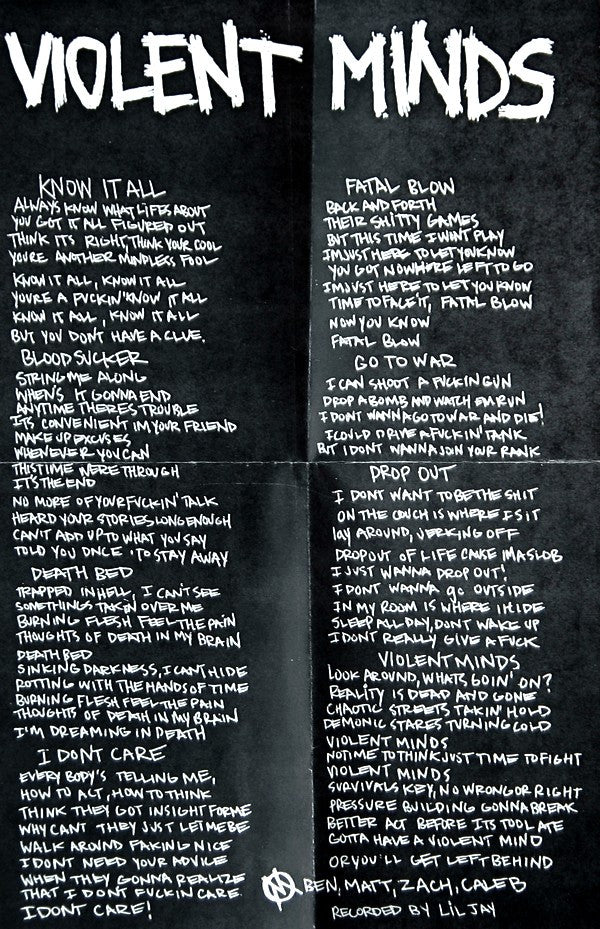 VIOLENT MINDS
KNOW IT ALL
ALWAYS KNOW WHAT LIFES ABOUT
YOU GOT IT ALL FIGURED OUT
THINK ITS RIGHT, THINK YOUR COOL
YOURE ANOTHER MINDLESS FOOL
KNOW IT ALL, KNOW IT ALL
YOURE A FUCKIN' KNOW IT ALL
KNOW IT ALL, KNOW IT ALL
BUT YOU DONT HAVE A CLUE.
BLOOD SUCKER
STRING ME ALONG
WHEN'S IT GONNA END
ANYTIME THERES TROUBLE
ITS CONVENIENT IM YOUR FRIEND
MAKE UP EXCUSES
WHENEVER YOU CAN
THIS TIME WERE THROUGH
IT'S THE END
NO MORE OF YOUR FUCKIN' TALK
HEARD YOUR STORIES LONG ENOUGH
CAN'T ADD UP TO WHAT YOU SAY
TOLD YOU ONCE TO STAY AWAY
DEATH BED
TRAPPED IN HELL, I CAN'T SEE
SOMETHINGS TAKEN OVER ME
BURNING FLESH FEEL THE PAIN
THOUGHTS OF DEATH IN MY BRAIN
DEATH BED
SINKING DARKNESS, I CANT HIDE
ROTTING WITH THE HANDS OF TIME
BURNING FLESH FEEL THE PAIN
THOUGHTS OF DEATH IN MY BRAIN
I'M DREAMING IN DEATH
I DONT CARE
EVERY BODY'S TELLING ME,
HOW TO ACT, HOW TO THINK
THINK THEY GOT INSIGHT FOR ME
WHY CANT THEY JUST LET ME BE
WALK AROUND FAKING NICE
I DONT NEED YOUR ADVICE
WHEN THEY GONNA REALIZE
THAT I DONT FUCKIN CARE
I DONT CARE!
FATAL BLOW
BACK AND FORTH
THEIR SHITTY GAMES
BUT THIS TIME I WONT PLAY
IM JUST HERE TO LET YOU KNOW
YOU GOT NOWHERE LEFT TO GO
IM JUST HERE TO LET YOU KNOW
TIME TO FACE IT, FATAL BLOW
NOW YOU KNOW
FATAL BLOW
GO TO WAR
I CAN SHOOT A FUCKIN GUN
DROP A BOMB AND WATCH EM RUN
I DONT WANNA GO TO WAR AND DIE!
I COULD DRIVE A FUCKIN' TANK
BUT I DONT WANNA JOIN YOUR RANK
DROP OUT
I DONT WANT TO BE THE SHIT
ON THE COUCH IS WHERE I SIT
lAY AROUND, JERKING OFF
DROPOUT OF LIFE CAUSE IM A SLOB
I JUST WANNA DROP OUT!
I DONT WANNA go OUTSIDE
IN MY ROOM IS WHERE I HIDE
SLEEP ALL DAY, DONT WAKE UP
I DONT REALLY GIVE A FUCK
VIOLENT MINDS
LOOK AROUND, WHATS GOIN' ON?
REALITY IS DEAD AND GONE
CHAOTIC STREETS TAKIN' HOLD
DEMONIC STARES TURNING COLD
VIOLENT MINDS
NO TIME TO THINK JUST TIME TO FIGHT
VIOLENT MINDS
SURVIVALS KEY, NO WRONG OR RIGHT
PRESSURE BUILDING GONNA BREAK
BETTER ACT BEFORE ITS TOO LATE
GOTTA HAVE A VIOLENT MIND
OR YOU'LL GET LEFT BEHIND
BEN, MATT, ZACH, CALEB
RECORDED BY LIL JAY